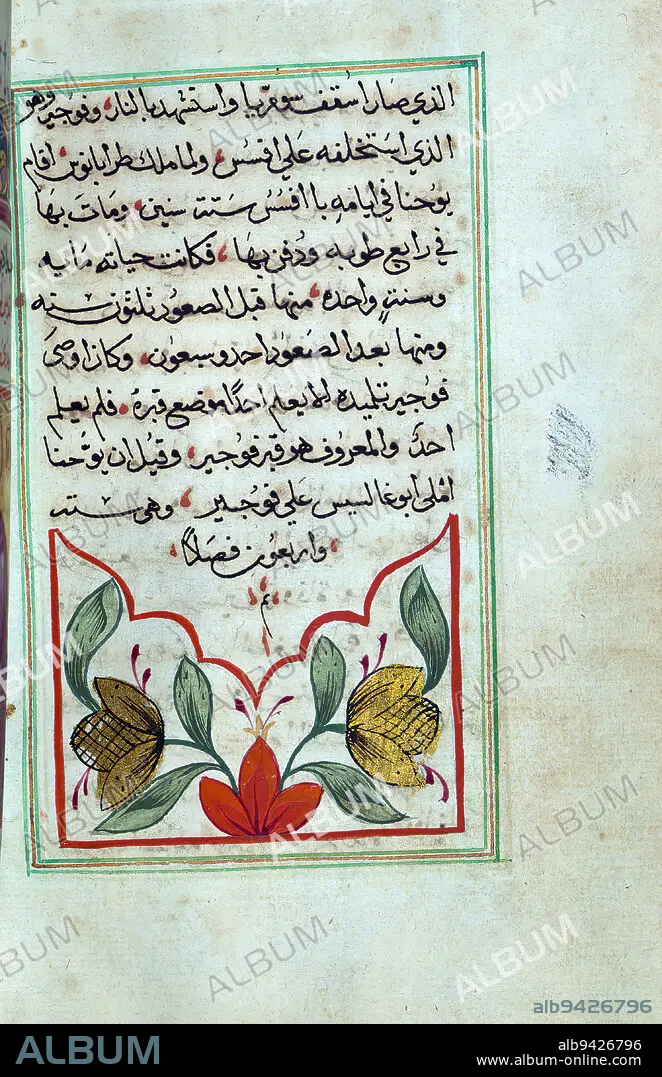 الذي صار اسقف سومريا واستشهد بالنار وفوجير وهو
الذي استخلفه علي افسس ولما ملك طرابانوس اقام
يوحنا في ايامه باافسس ستت سنين ومات بها
في رابع طوبه ودفن بها فكانت حياته مايه
وسنت واحده منها قبل الصعود ثلثون سنه
ومنها بعد الصعود احد وسبعون وكان اوصي
فوجير تلميده لا يعلم احدًا موضع قبره فلم يعلم
احد والمعروف هو قبر فوجير وقيل ان يوحنا
املي ابوغالسيس علي فوجير وهي ستت
واربعون فصلًا
ALBUM
alb9426796
ALBUM
alb9426796
www.album-online.com